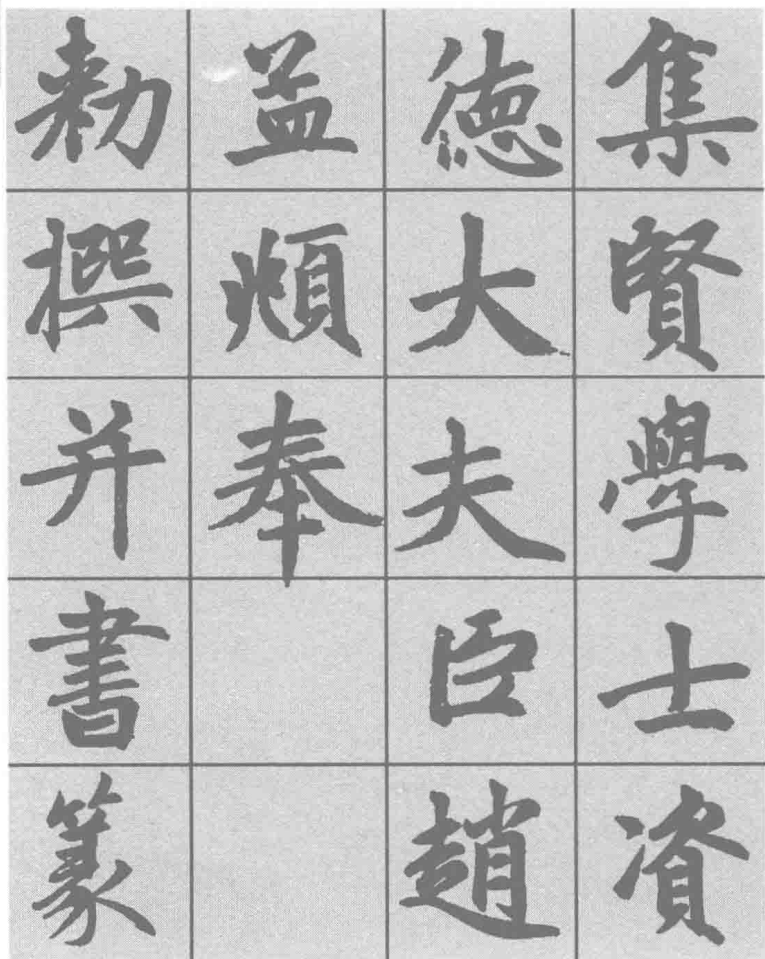 集賢學士資
德大夫臣趙
孟頫奉
勅撰并書篆